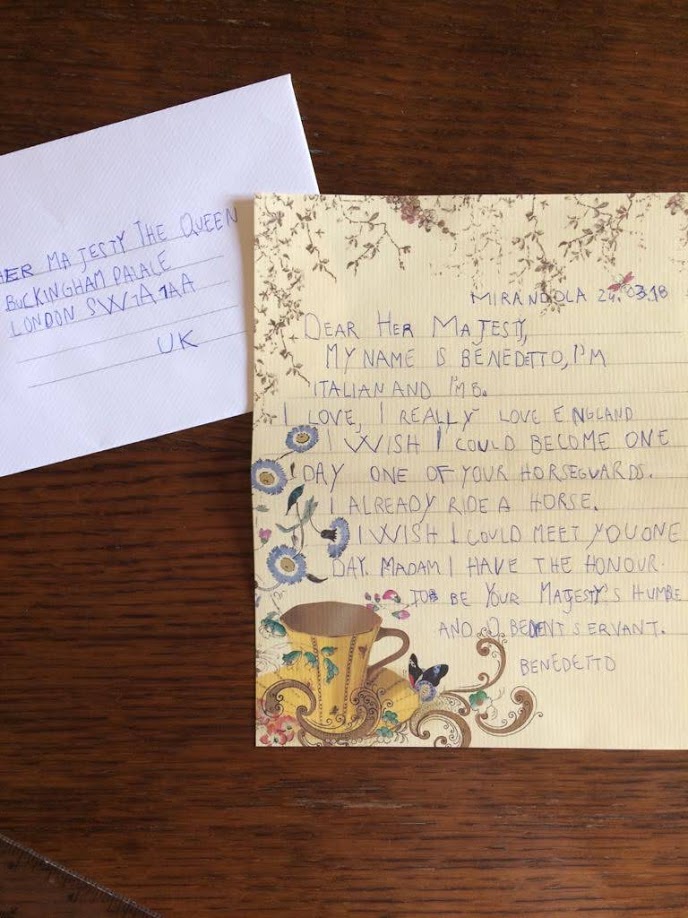 HER MAJESTY THE QUEEN
BUCKINGHAM PALACE
LONDON SW1A 1AA
UK
MIRANDOLA 24.03.18
DEAR HER MAJESTY,
MY NAME IS BENEDETTO, I'M
ITALIAN AND I'M 8.
I LOVE, I REALLY LOVE ENGLAND
I WISH I COULD BECOME ONE
DAY ONE OF YOUR HORSEGUARDS.
I ALREADY RIDE A HORSE.
I WISH I COULD MEET YOU ONE
DAY. MADAM I HAVE THE HONOUR
TO BE YOUR MAJESTY'S HUMBE
AND OBEDENT SERVANT.
BENEDETTO